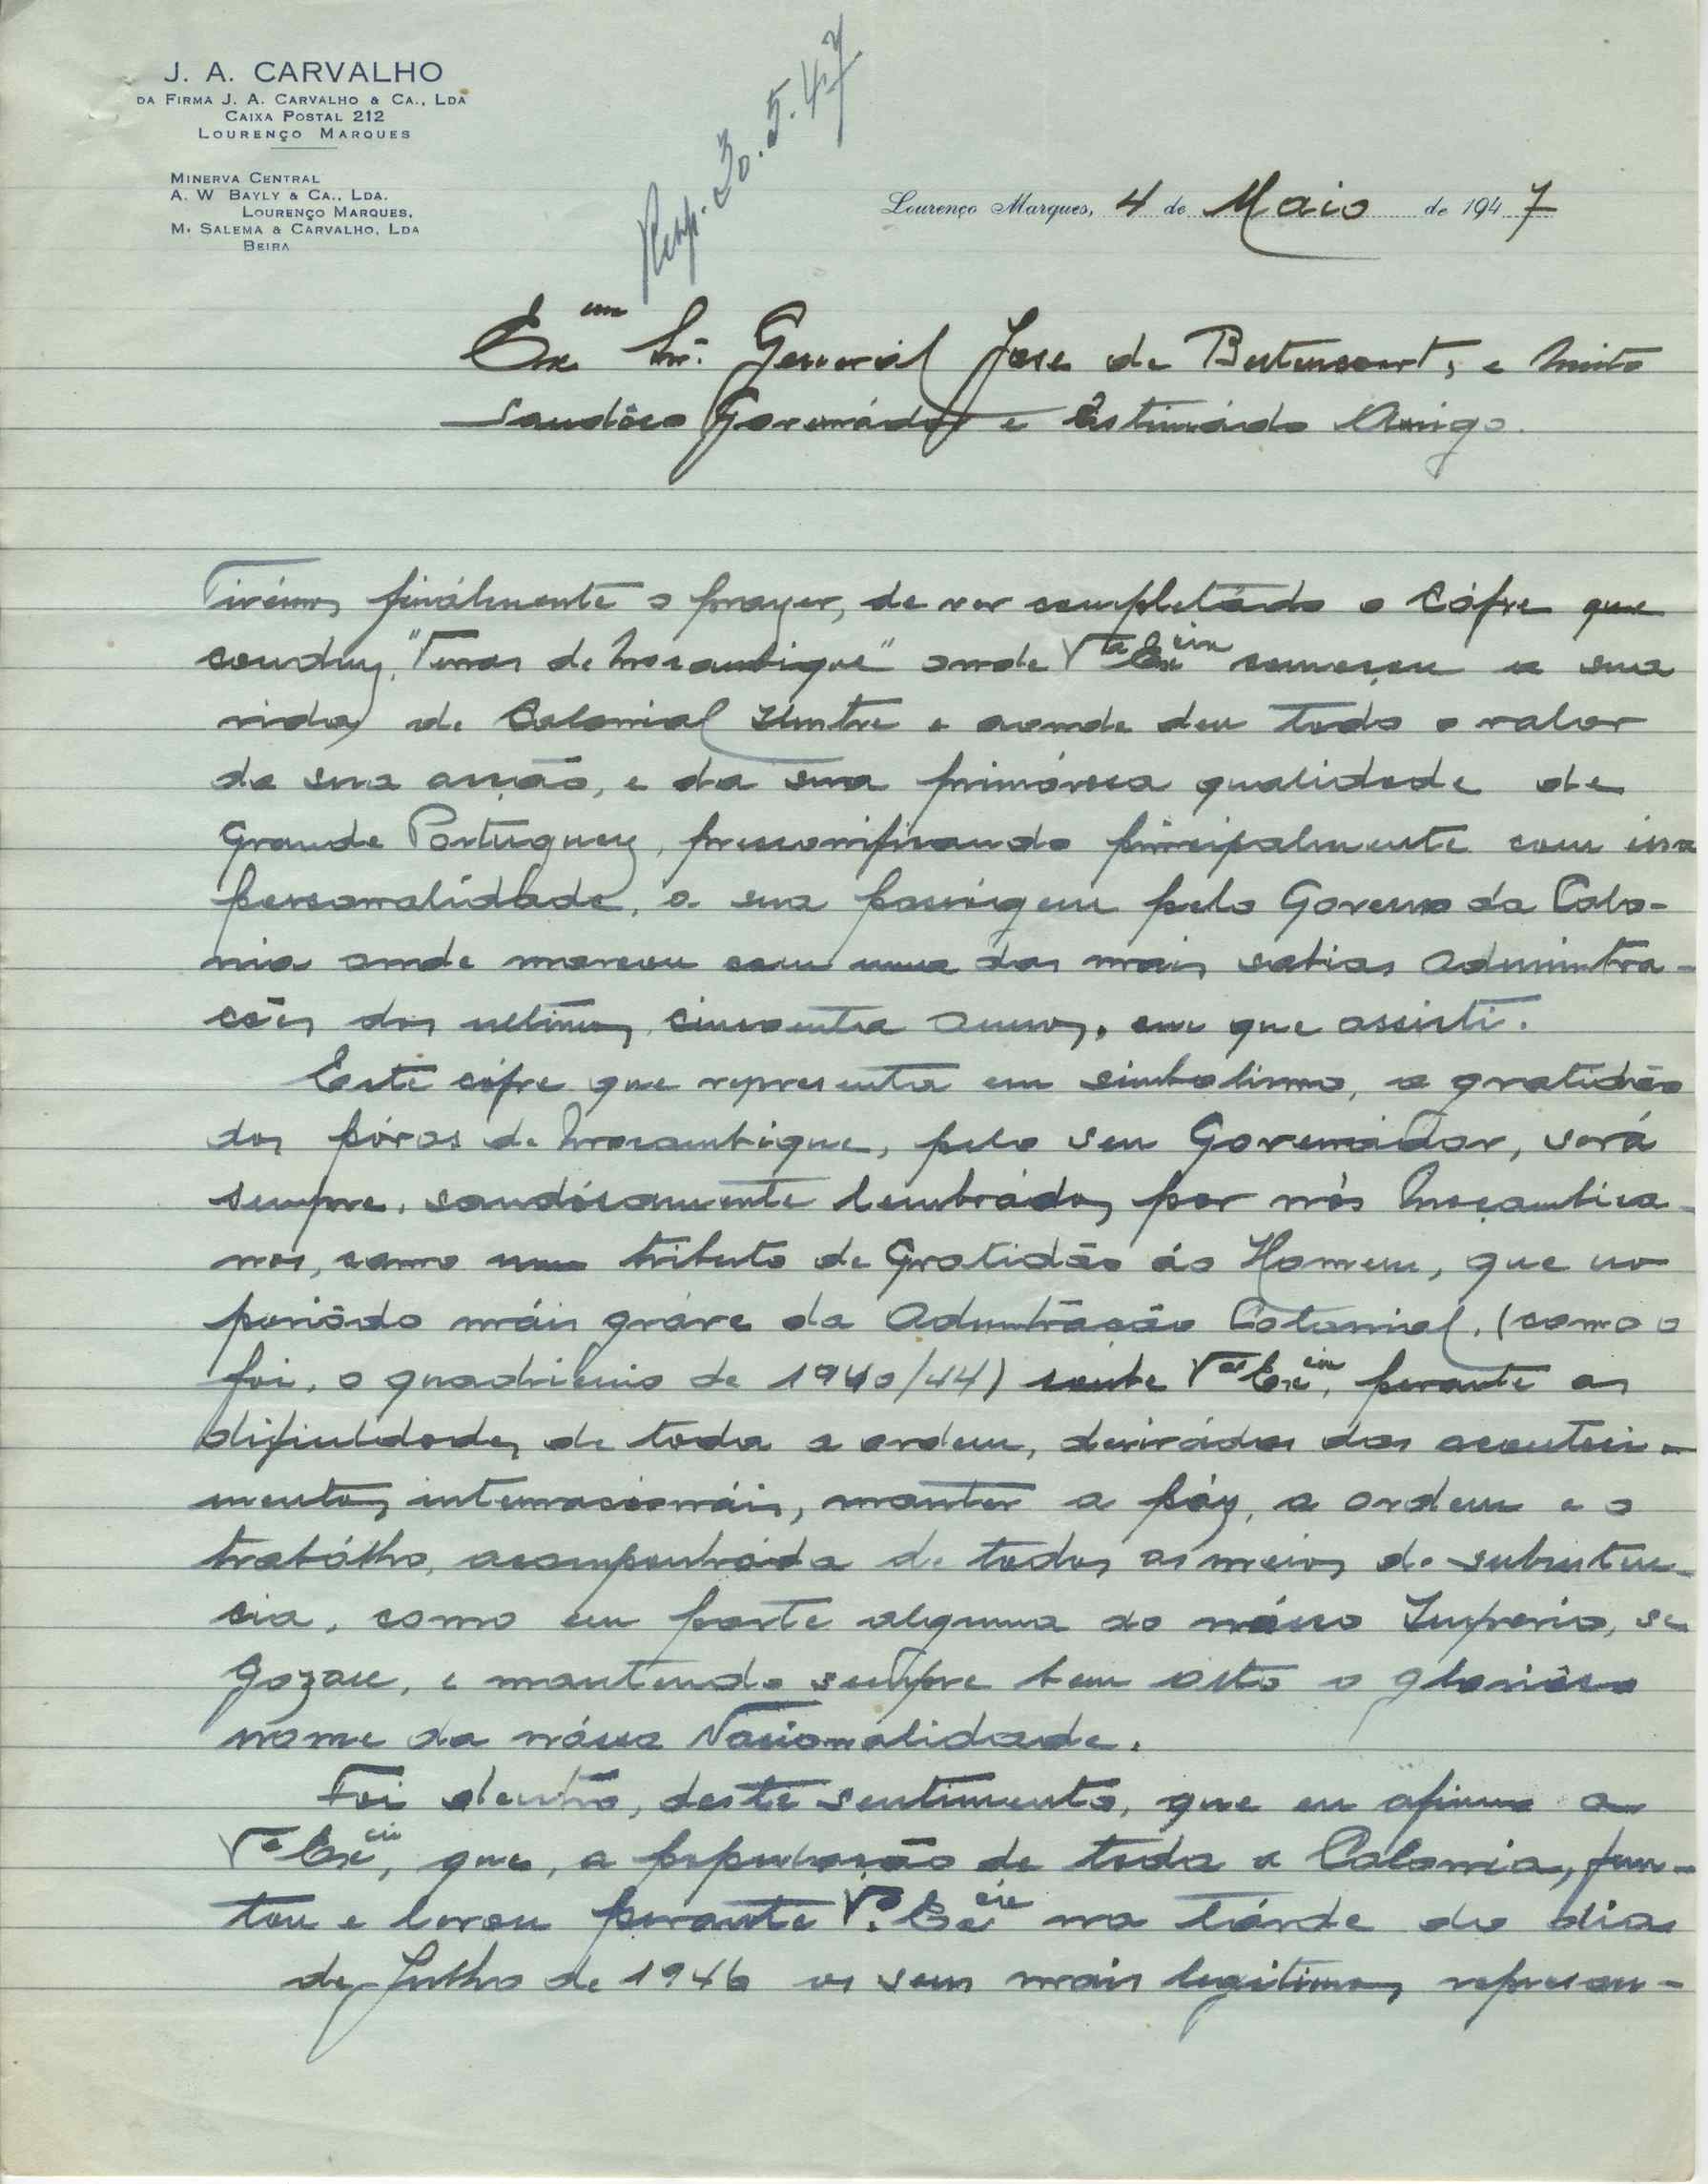 J. A. CARVALHO
DA FIRMA J. A. CARVALHO & CA., LDA
CAIXA POSTAL 212
LOURENÇO MARQUES
MINERVA CENTRAL
A. W BAYLY & CA., LDA.
LOURENÇO MARQUES.
M. SALEMA & CARVALHO, LDA
BEIRA
Resp. 30.5.47
Lourenço Marques, 4 de Maio de 1947
Exmo Snr. General José de Bettencourt, e muito
saudôso Governádor e Estimádo Amigo.
Tivémos finálmente o prazer, de ver completádo o Cófre que
conduz, "Terras de Moçambique" onde Va Excia começou a sua
vida, de Colonial Ilustre e aonde deu todo o valor
da sua acção, e da sua primórosa qualidade de
Grande Portuguez, principalmente com essa
personalidade, a sua passágem pelo Governo da Colo-
nia onde marcou com uma das mais sabias Adminitra-
cões dos ultimos cincoenta Annos, em que assisti.
Este cófre que representa em simbolismo, a gratidão
dos póvos de Moçambique, pelo seu Governádor, será
sempre, saudósamente lembrádo, por nós Moçambica-
nos, como um tributo de Gratidão áo Homem, que no
periôdo máis gráve da Admntração Colonial, (como o
foi, o quadrienio de 1940/44) soube Va Excia, perante as
dificuldades de toda a ordem, derivádas dos acontesi-
mentos internacionáis, manter a páz, a ordem e o
trabálho, acompanháda de todos os meios de subsisten-
cia, como em parte alguma do nósso Imperio, se
gozou, e mantendo sempre bem alto o gloriôso
nome da nóssa Nacionalidade.
Foi dentro, deste sentimento, que eu afirmo a
Va Excia, que, a população de toda a Colonia, jun-
tou e levou perante V. Excia na tárde do dia
de Julho de 1946 os seus mais legitimos represen-